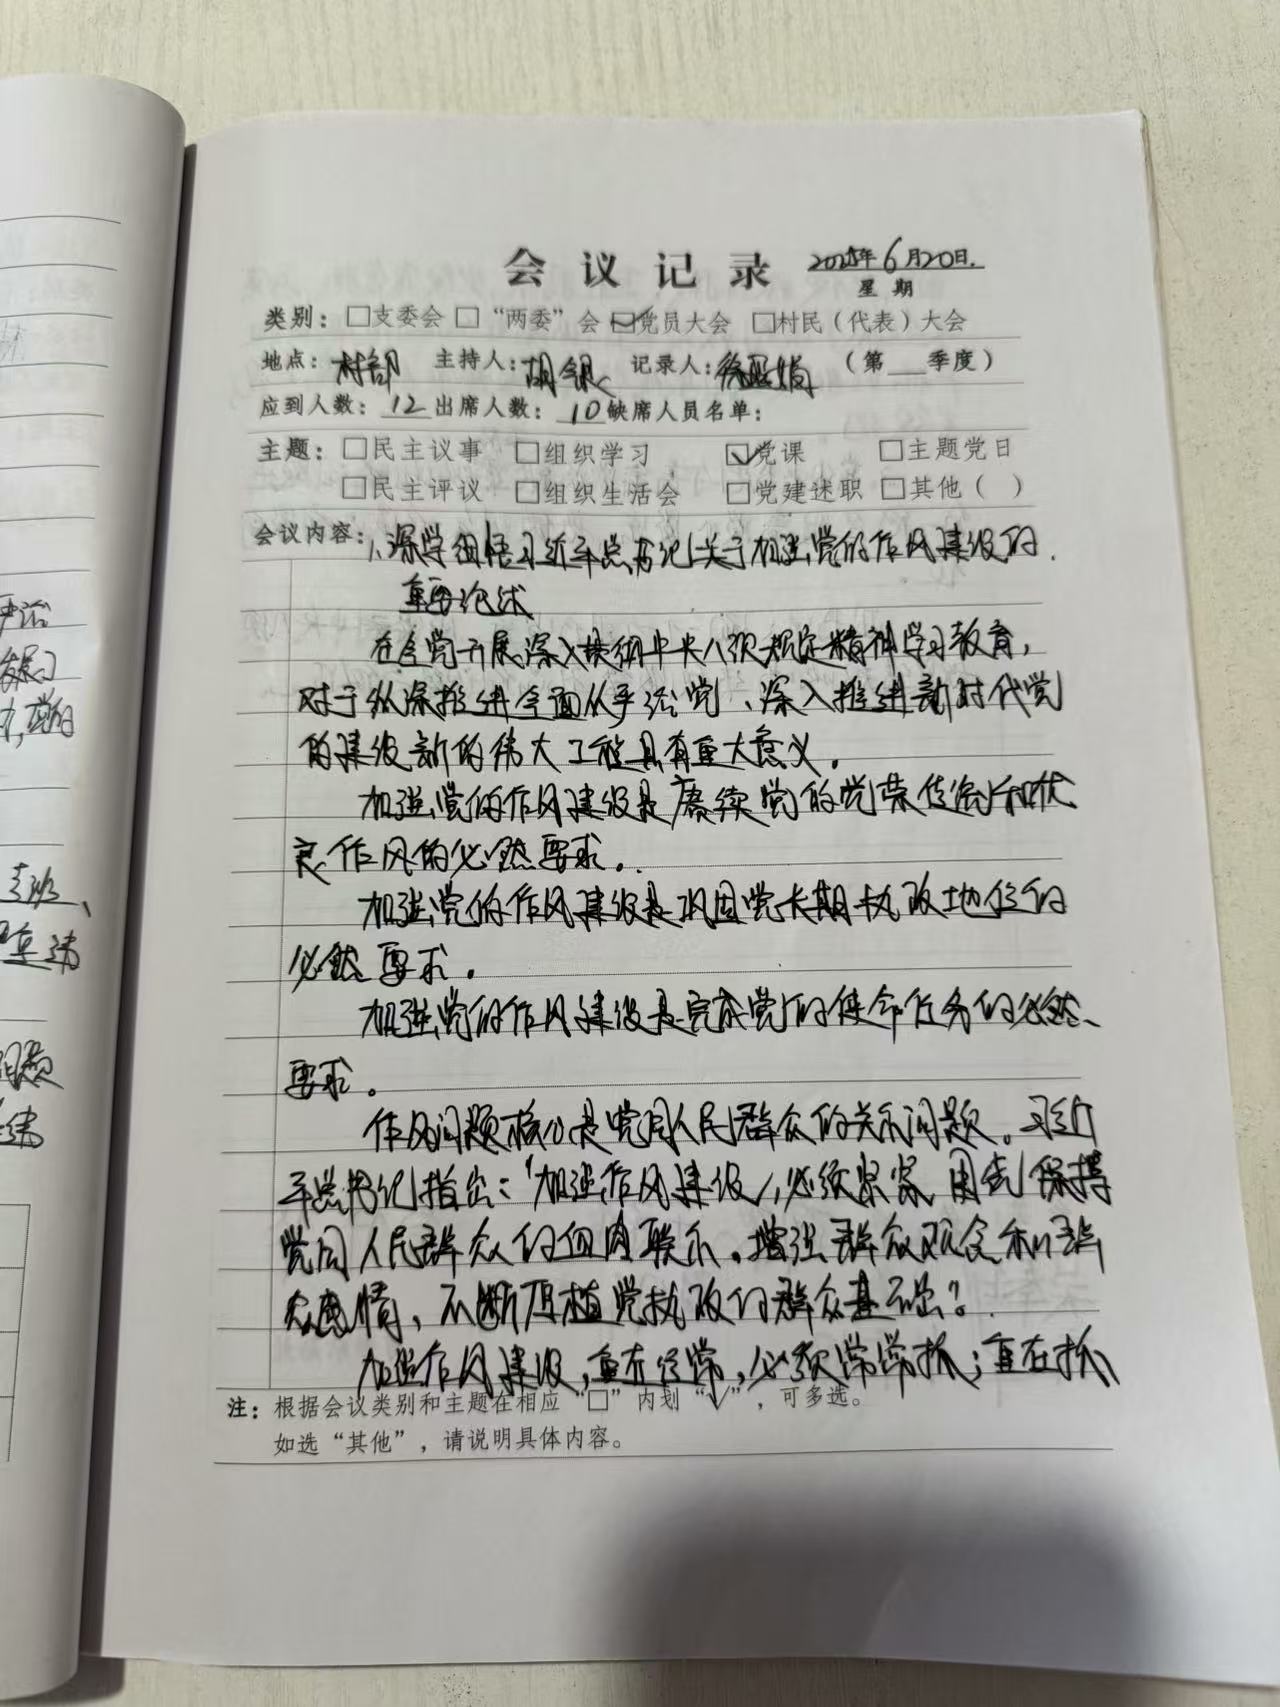 会议记录 2025年6月20日.
星期
类别：□支委会 □“两委”会 ☑党员大会 □村民（代表）大会
地点：村部 主持人：胡银 记录人：徐 （第 季度）
应到人数：12 出席人数：10 缺席人员名单：
主题：□民主议事 □组织学习 ☑党课 □主题党日
□民主评议 □组织生活会 □党建述职 □其他（ ）
会议内容：1、深学细悟习近平总书记关于加强党的作风建设的
重要论述
在全党开展深入贯彻中央八项规定精神学习教育，
对于纵深推进全面从严治党、深入推进新时代党
的建设新的伟大工程具有重大意义。
加强党的作风建设是赓续党的光荣传统和优
良作风的必然要求。
加强党的作风建设是巩固党长期执政地位的
必然要求。
加强党的作风建设是完成党的使命任务的必然
要求。
作风问题核心是党同人民群众的关系问题。习近
平总书记指出：“加强作风建设，必须紧紧围绕保持
党同人民群众的血肉联系，增强群众观念和群
众感情，不断厚植党执政的群众基础”。
加强作风建设，重在经常，必须常常抓；重在抓
注：根据会议类别和主题在相应“□”内划“√”，可多选。
如选“其他”，请说明具体内容。